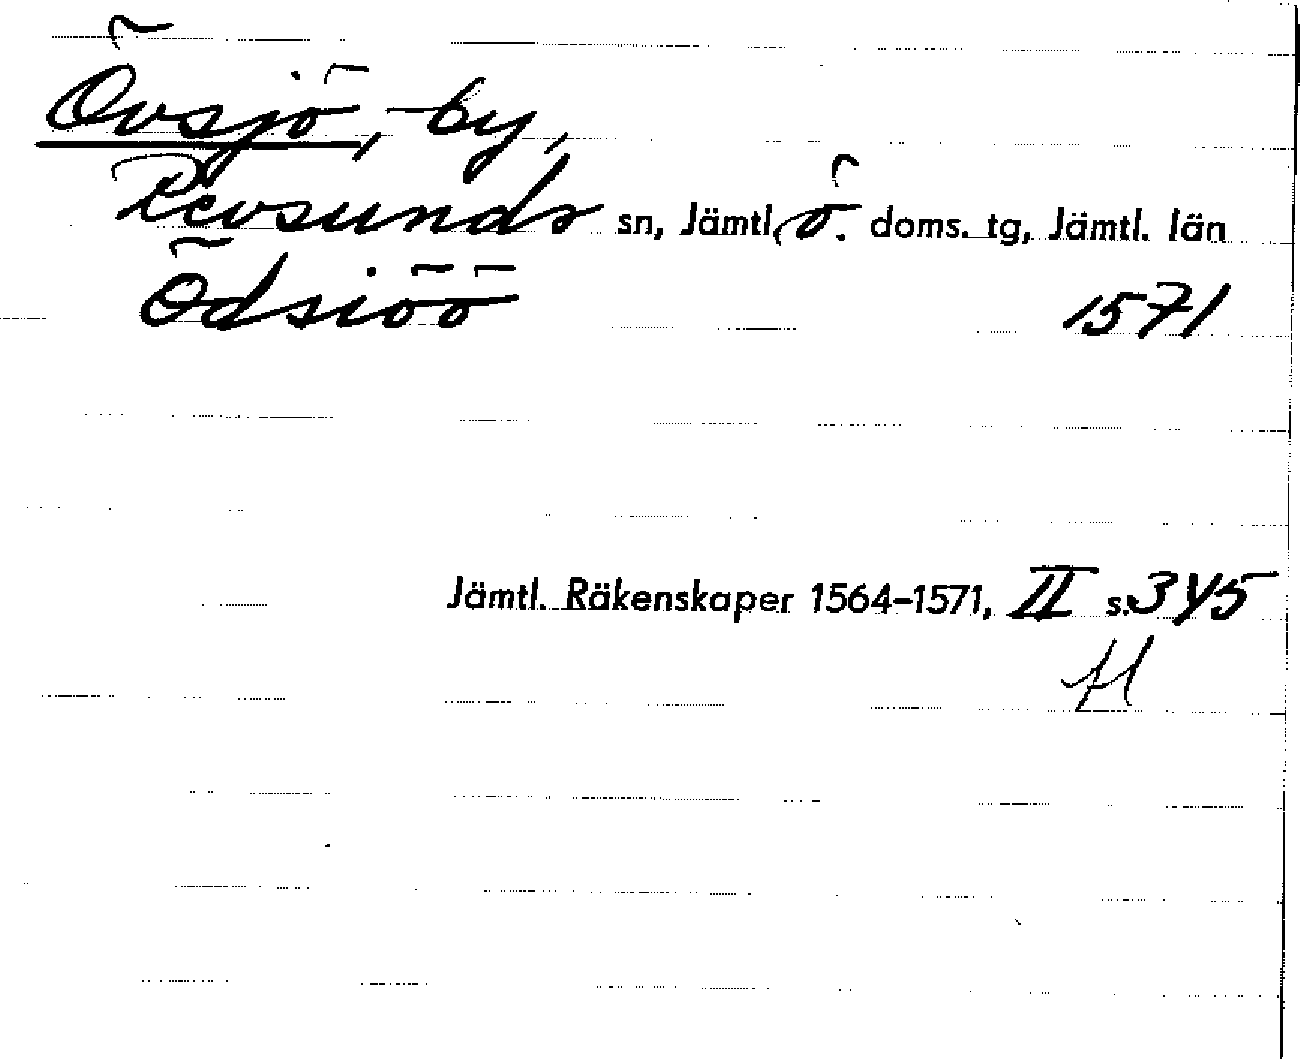 Övsjö, by,
Revsunds sn, Jämtl. ö. doms. tg, Jämtl. län
Ödsiöö 1571
Jämtl. Räkenskaper 1564-1571, II s. 345